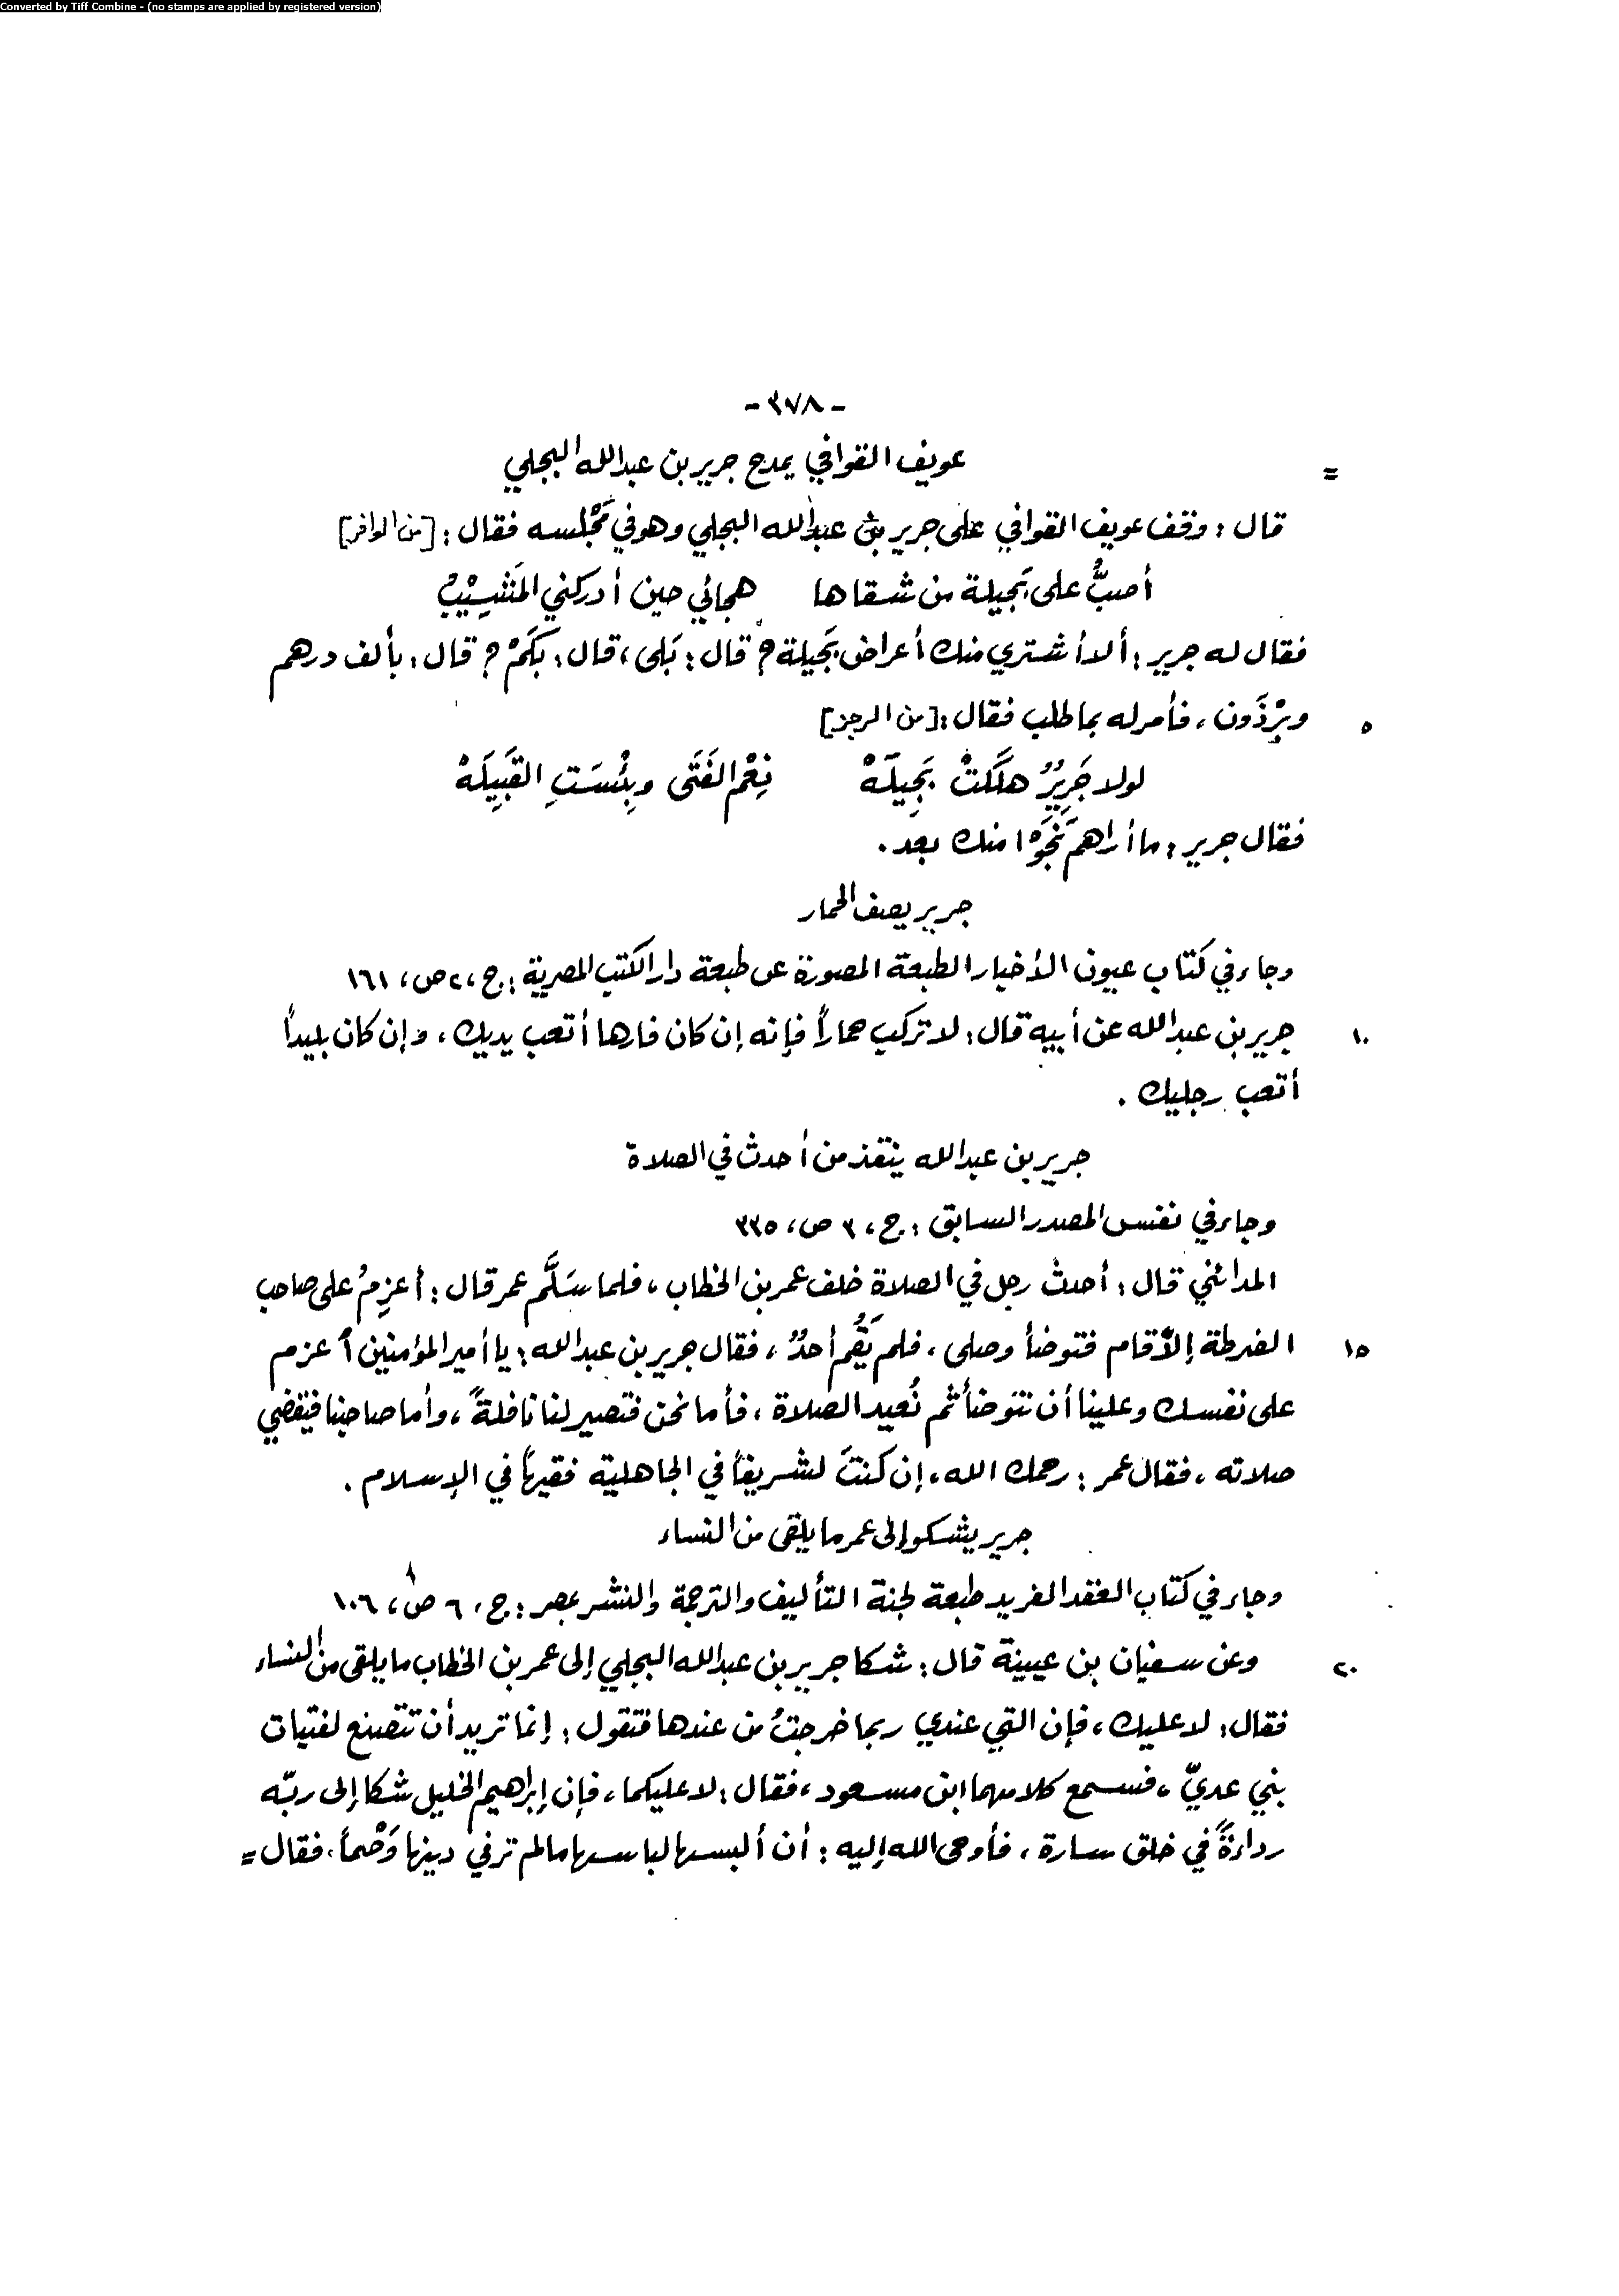 Converted by Tiff Combine - (no stamps are applied by registered version)
- ٣٧٨ -
= عويف القوافي يمدح جرير بن عبدالله البجلي
قال : وقف عويف القوافي على جرير بن عبدالله البجلي وهو في مَجْلسه فقال : [من الوافر]
أصبُّ على بَجيلة من شقاها هجائي حين أدركني المَشِيْبُ
فقال له جرير : ألا أشتري منك أعراض بَجيلة ؟ قال : بَلى ، قال : بكَمْ ؟ قال : بألف درهم
٥ وبِرْذَون ، فأمر له بما طلب فقال : [من الرجز]
لولا جَرِيرٌ هلَكَتْ بَجِيلَهْ نِعْمَ الفَتَى وبِئْسَتِ القَبِيلَهْ
فقال جرير : ما أراهم نَجَوْا منك بعد .
جرير يصف الحمار
وجاء في كتاب عيون الأخبار الطبعة المصورة عن طبعة دار الكتب المصرية : ج ، ٢ ص ، ١٦١
١٠ جرير بن عبدالله عن أبيه قال : لا تركب حماراً فإنه إن كان فارها أتعب يديك ، وإن كان بليداً
أتعب رجليك .
جرير بن عبدالله ينقذ من أحدث في الصلاة
وجاء في نفس المصدر السابق : ج ، ٣ ص ، ٣٣٥
المدائني قال : أحدث رجل في الصلاة خلف عمر بن الخطاب ، فلما سَلَّم عمر قال : أعزِمُ على صاحب
١٥ الضرطة إلاَّ قام فتوضأ وصلى ، فلم يَقُم أحدٌ ، فقال جرير بن عبدالله : يا أمير المؤمنين أعزم
على نفسك وعلينا أن نتوضأ ثم نُعيد الصلاة ، فأما نحن فتصير لنا نافلةً ، وأما صاحبنا فيقضي
صلاته ، فقال عمر : رحمك الله ، إن كنتَ لشريفاً في الجاهلية فقيهاً في الإسلام .
جرير يشكو إلى عمر ما يلقى من النساء
وجاء في كتاب العقد الفريد طبعة لجنة التأليف والترجمة والنشر بمصر : ج ، ٦ ص ، ١٠٦
٢٠ وعن سفيان بن عيينة قال : شكا جرير بن عبدالله البجلي إلى عمر بن الخطاب ما يلقى من النساء
فقال : لا عليك ، فإن التي عندي ربما خرجتُ من عندها فتقول : إنما تريد أن تتصنع لفتيات
بني عديّ ، فسمع كلامهما ابن مسعود ، فقال : لا عليكما ، فإن إبراهيم الخليل شكا إلى ربّه
رداءةً في خلق سارة ، فأوحى الله إليه : أن ألبسها لباسها ما لم تر في دينها وَصْماً ، فقال =